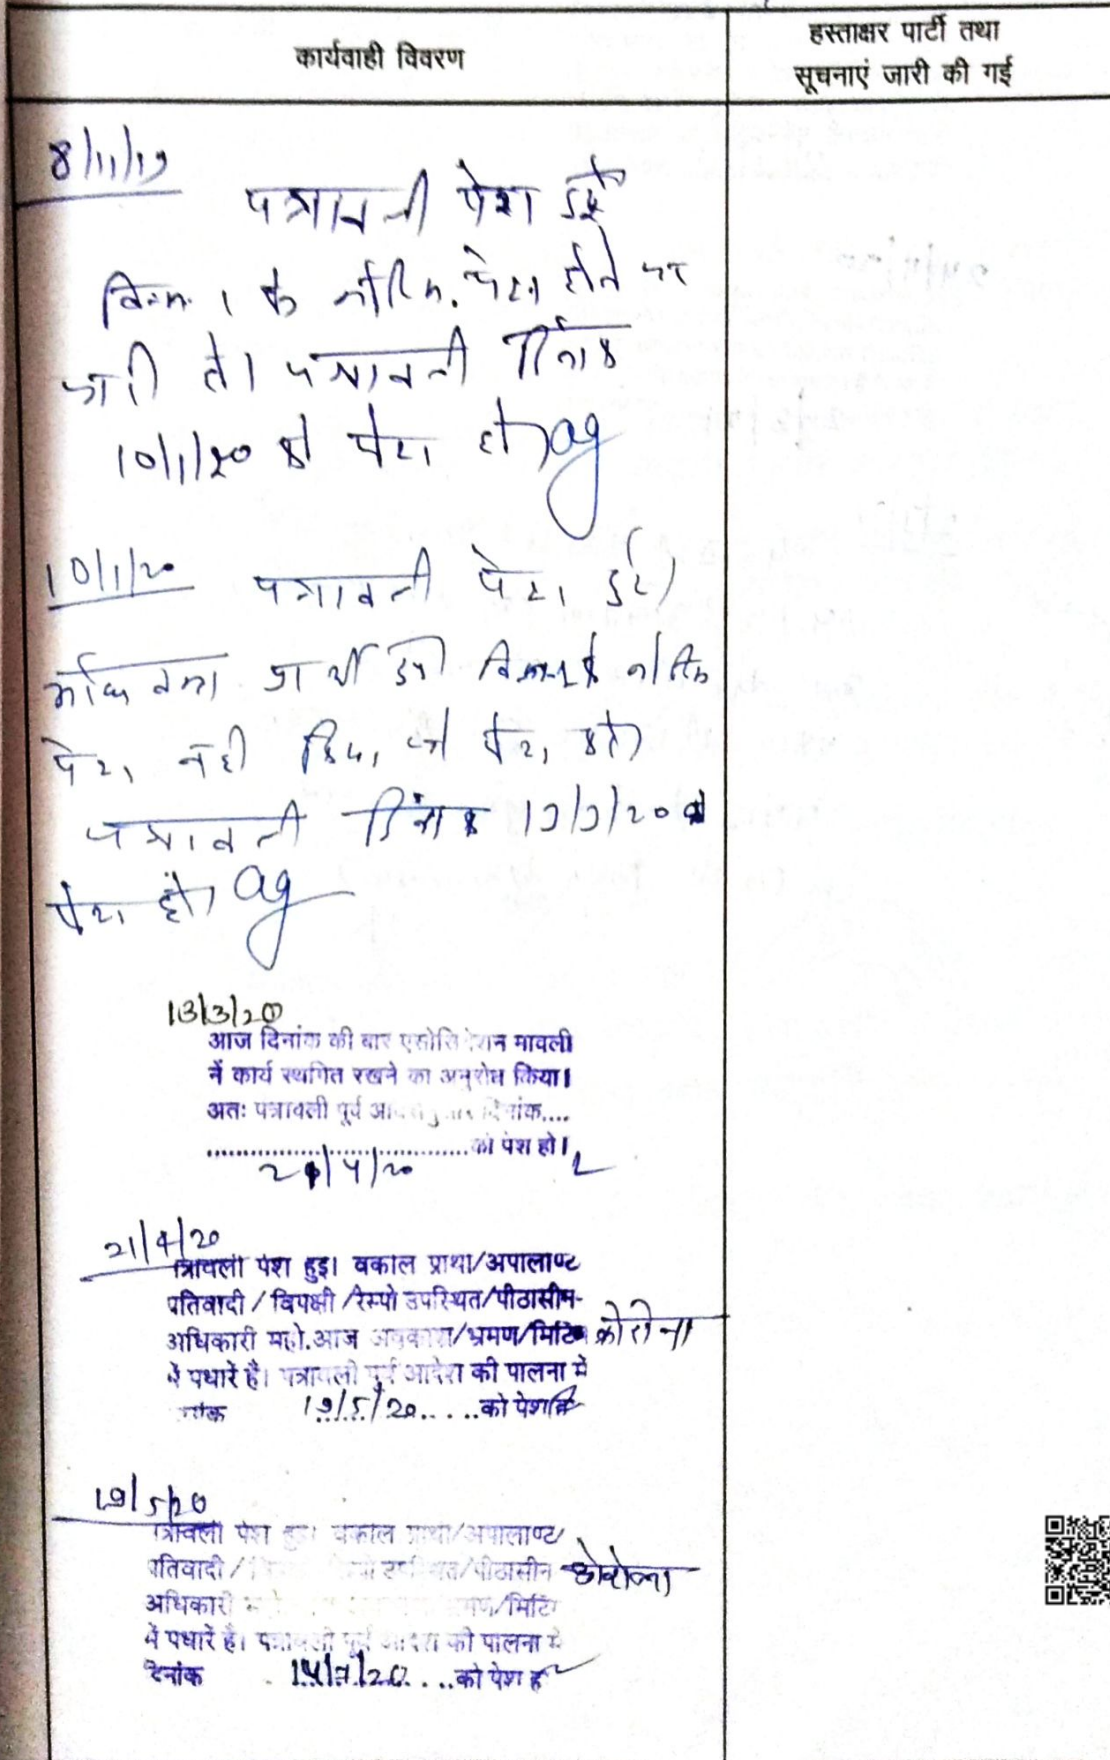 कार्यवाही विवरण
हस्ताक्षर पार्टी तथा
सूचनाएं जारी की गई
8/11/19
पत्रावली पेश हुई
के नोटिस पेश होने पर
जारी हो। पत्रावली दिनांक
10/1/20 को पेश हो।
10/1/20 पत्रावली पेश हुई।
नोटिस
पेश नही किए, पेश करें।
पत्रावली दिनांक 13/3/20 को
पेश हो।
13/3/20
आज दिनांक की बार एसोसिऐशन मावली
नें कार्य स्थगित रखने का अनुरोध किया।
अतः पत्रावली पूर्व आदेशानुसार दिनांक....
........................................को पेश हो।
21/4/20
21/4/20
त्रावली पेश हुई। वकील प्रार्थी/अपीलाण्ट
प्रतिवादी / विपक्षी /रेस्पो उपस्थित/पीठासीन
अधिकारी महो. आज अवकाश/भ्रमण/मिटिंग कोरोना
में पधारें है। पत्रावली पूर्व आदेश की पालना में
नांक 19/5/20.....को पेश हो
19/5/20
त्रावली पेश हुई। वकील प्रार्थी/अपीलाण्ट/
प्रतिवादी / उपस्थित/पीठासीन कोरोना
अधिकारी महो. भ्रमण/मिटिं
में पधारें है। पत्रावली पूर्व आदेश की पालना में
दिनांक 14/7/20....को पेश ह